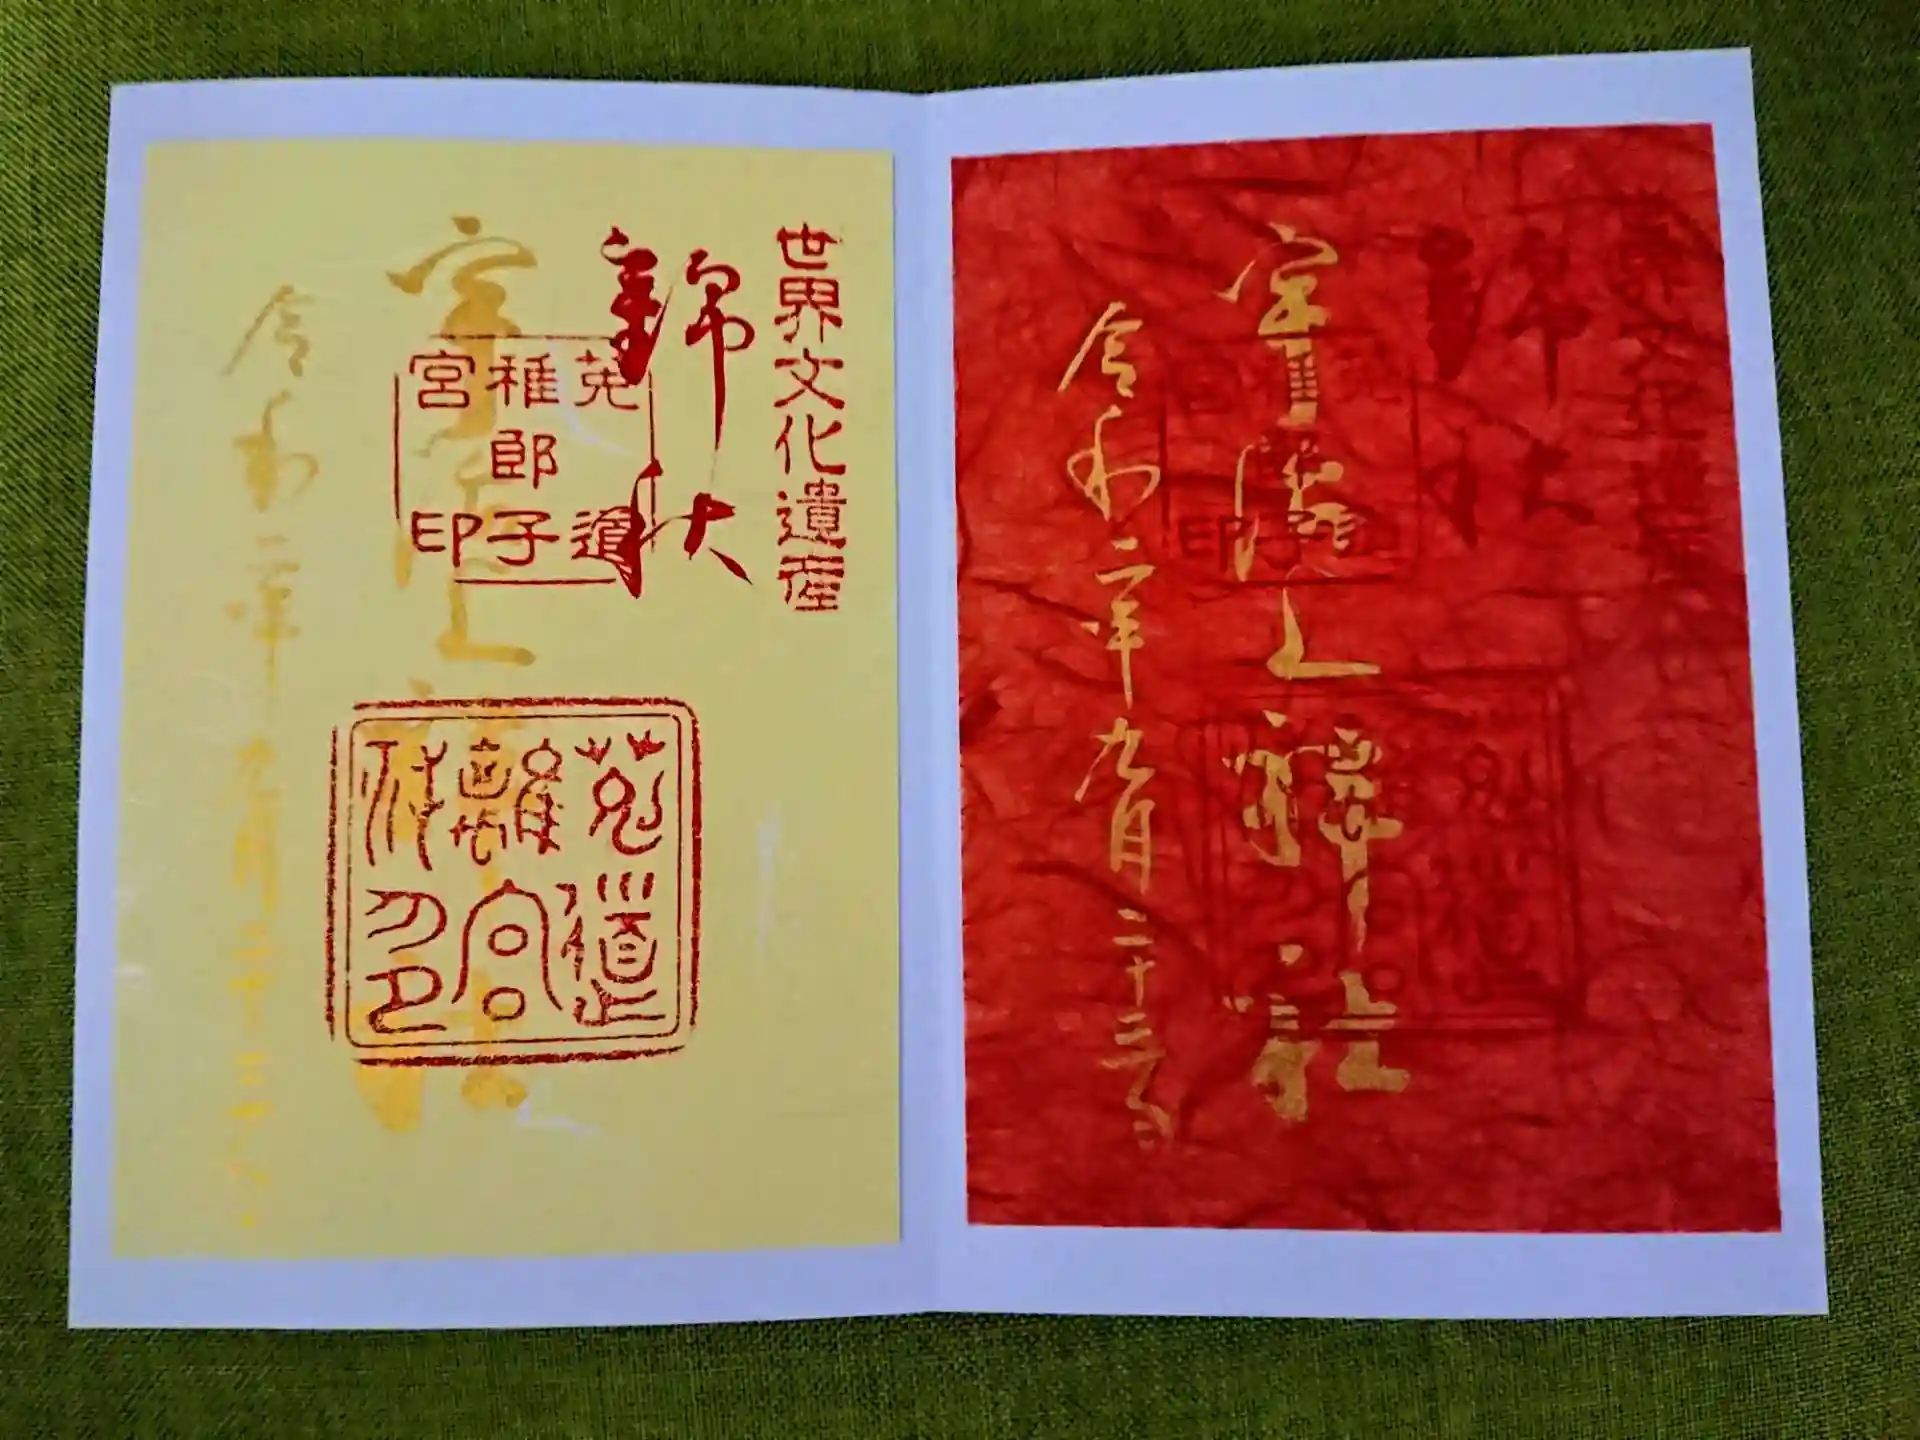 世界文化遺産
錦秋
宇治上神社
令和二年九月二十三日
世界文化遺産
錦秋
菟道
稚郎子
宮印
宇治上神社
菟道
離宮
令和二年九月二十三日